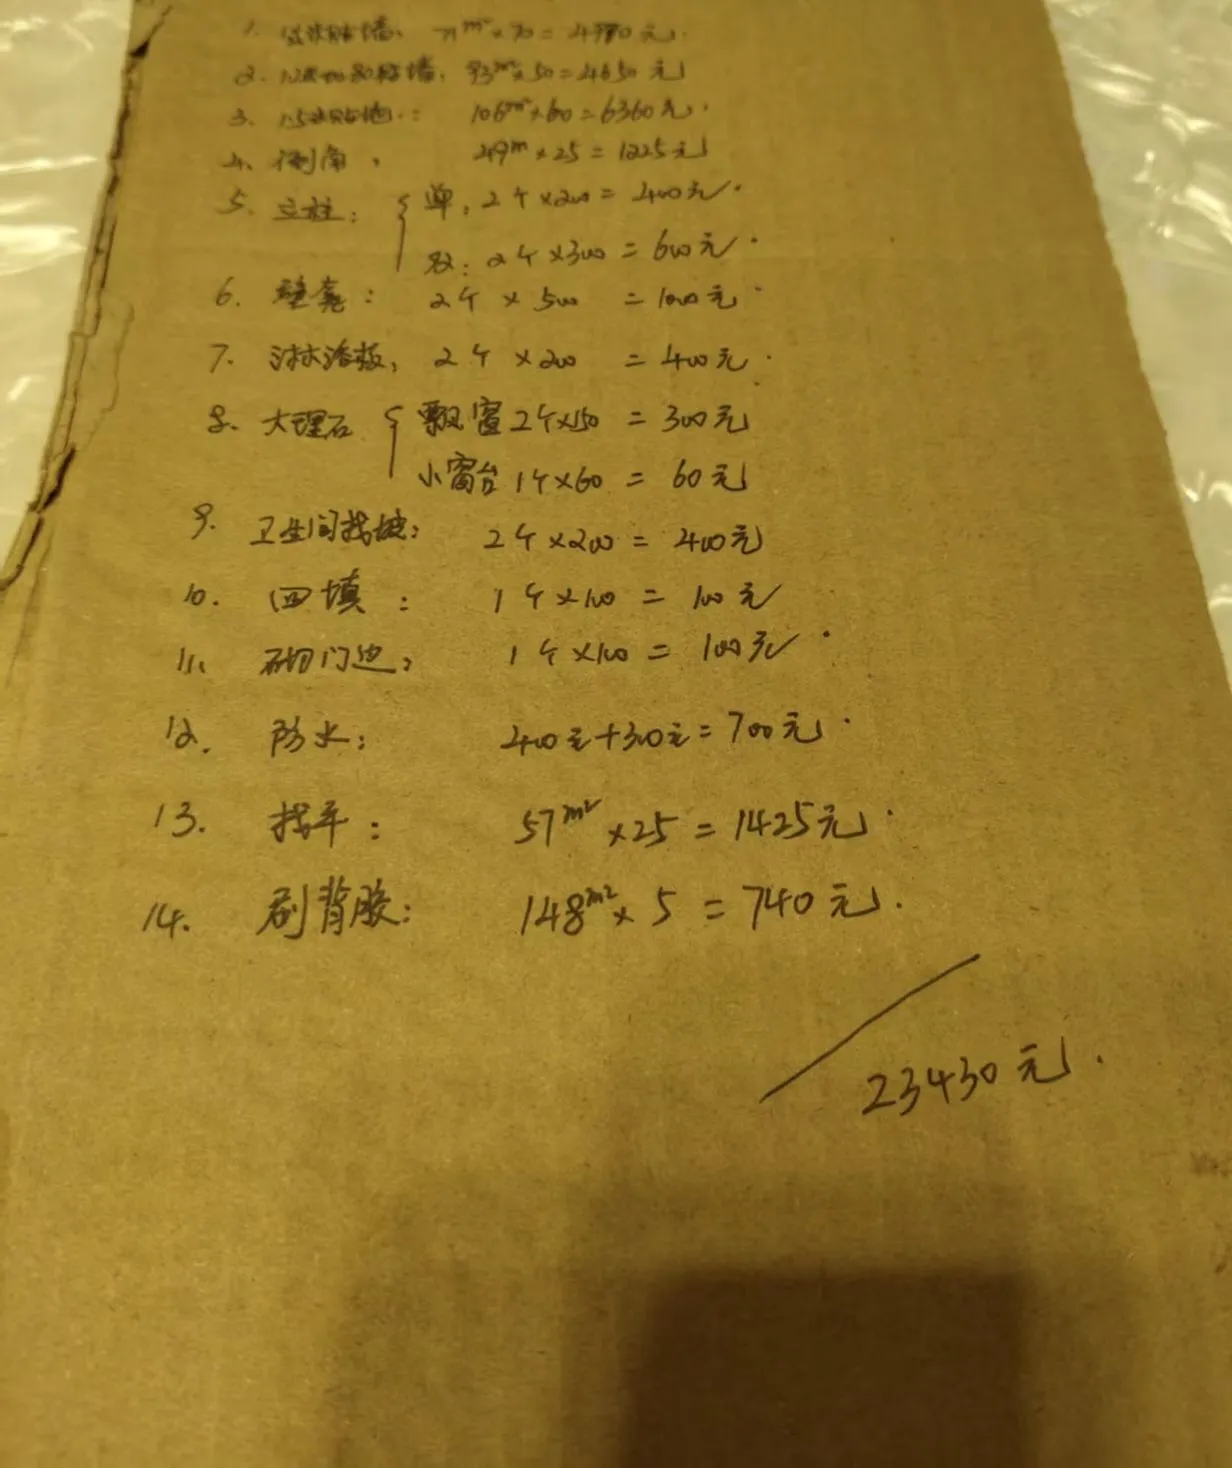 1. 贴墙: 71m²×70=4970元.
2. 贴墙: 93m²×50=4650元
3. 1.5米贴地: 106m²×60=6360元.
4. 倒角: 49m×25=1225元
5. 立柱: { 单: 2个×200=400元.
双: 2个×300=600元.
6. 壁龛: 2个×500=1000元.
7. 淋浴板: 2个×200=400元.
8. 大理石 { 飘窗2个×150=300元
小窗台1个×60=60元
9. 卫生间找坡: 2个×200=400元
10. 回填: 1个×100=100元
11. 砌门边: 1个×100=100元.
12. 防水: 400元+300元=700元.
13. 找平: 57m²×25=1425元.
14. 刷背胶: 148m²×5=740元.
23430元.